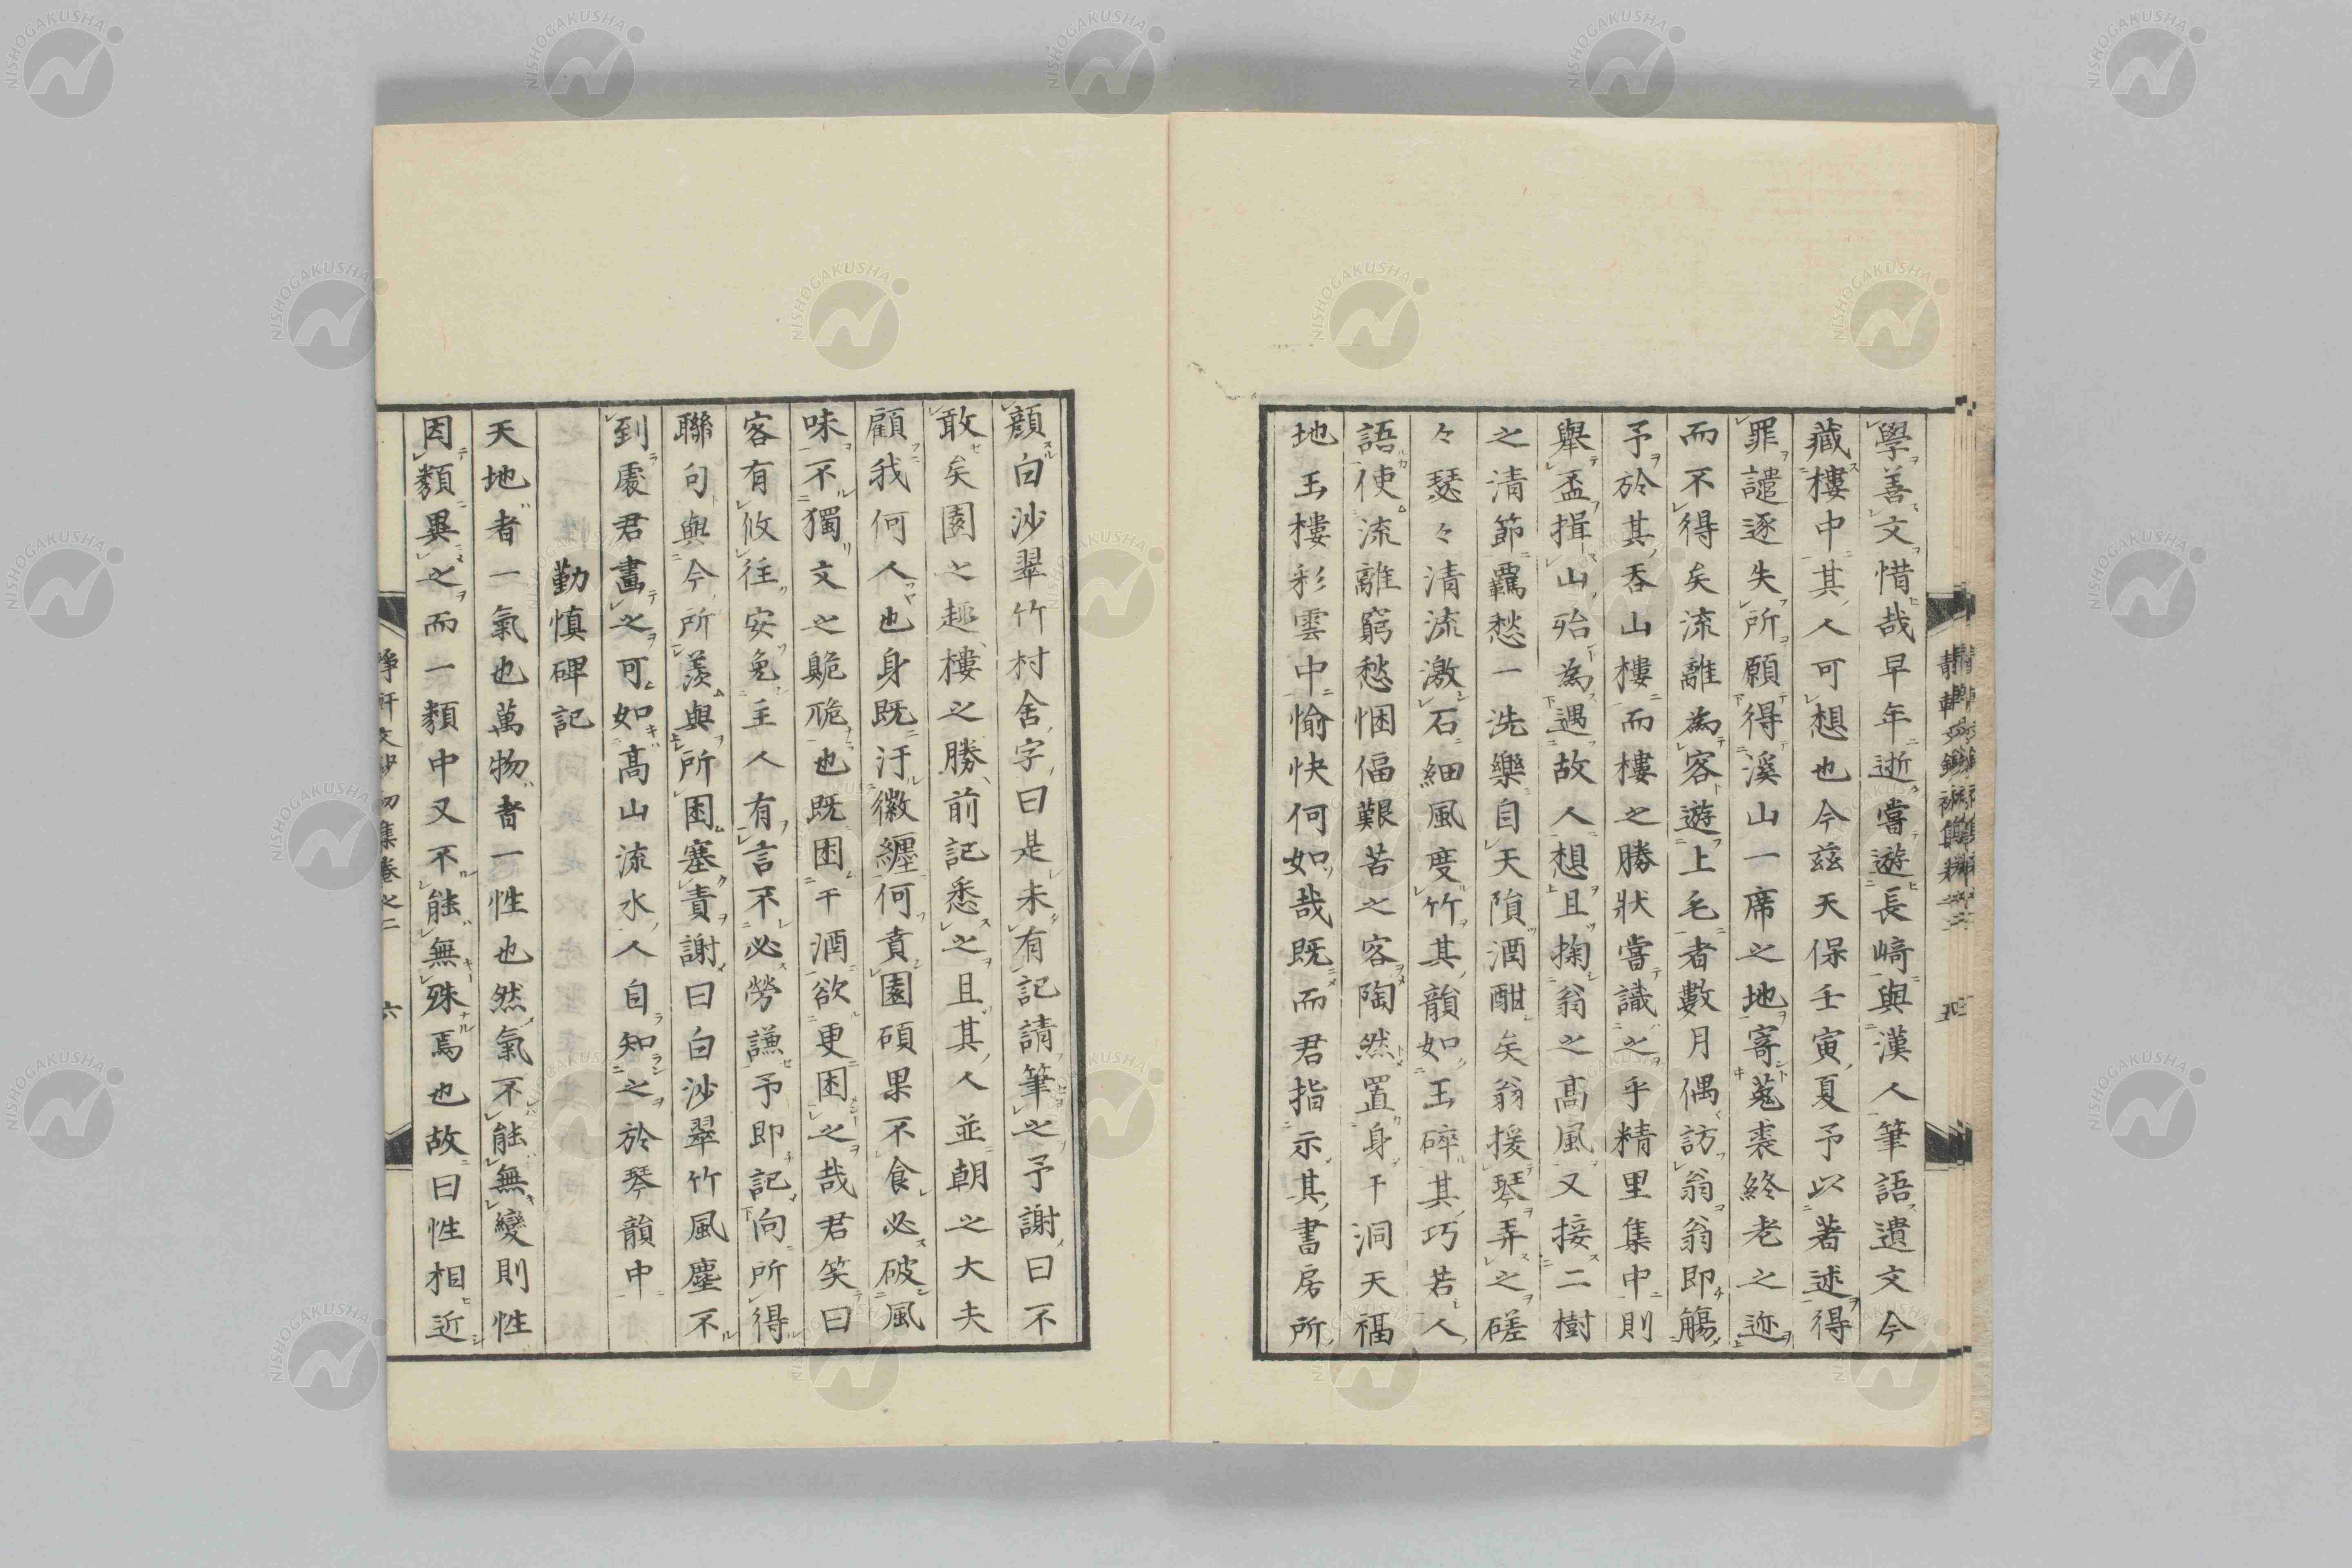 學善文惜哉早年逝嘗遊長崎與漢人筆語遺文今
藏樓中其人可想也今茲天保壬寅夏予以著述得
罪譴逐失所願得溪山一席之地寄菟裘終老之迹
而不得矣流離為客遊上毛者數月偶訪翁翁即觴
予於其吞山樓而樓之勝狀嘗識之乎精里集中則
舉盃揖山殆為遇故人想且掬翁之高風又接二樹
之清節羈愁一洗樂自天隕酒酣矣翁援琴弄之磋
々瑟々清流激石細風度竹其韻如玉碎其巧若人
語使流離窮愁悃偪艱苦之客陶然置身于洞天福
地玉樓彩雲中愉快何如哉既而君指示其書房所
顏白沙翠竹村舍字曰是未有記請筆之予謝曰不
敢矣園之趣樓之勝前記悉之且其人並朝之大夫
顧我何人也身既汙徽纆何賁園碩果不食必破風
味不獨文之臲卼也既困于酒欲更困之哉君笑曰
客有攸往安免主人有言不必勞謙予即記向所得
聯句與今所羨與所困塞責謝曰白沙翠竹風塵不
到處君畫之可如高山流水人自知之於琴韻中
勤慎碑記
天地者一氣也萬物者一性也然氣不能無變則性
因類異之而一類中又不能無殊焉也故曰性相近
靜軒文鈔初集卷之二 六